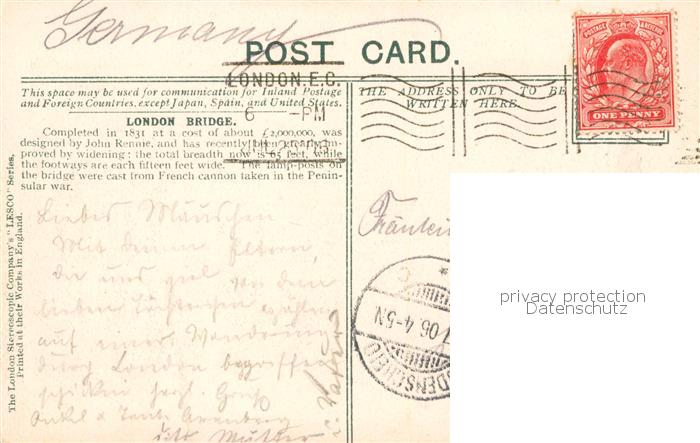 Germany
POST CARD.
LONDON. E.C.
6 -PM
This space may be used for communication for Inland Postage
and Foreign Countries, except Japan, Spain, and United States.
THE ADDRESS ONLY TO BE
WRITTEN HERE.
POSTAGE REVENUE
ONE PENNY
LONDON BRIDGE.
Completed in 1831 at a cost of about £2,000,000, was
designed by John Rennie, and has recently been greatly im-
proved by widening: the total breadth now is 65 feet, while
the footways are each fifteen feet wide. The lamp-posts on
the bridge were cast from French cannon taken in the Penin-
sular war.
The London Stereoscopic Company's "LESCO" Series.
Printed at their Works in England.
Liebes Mäuschen
Mit deinen Eltern,
die uns viel von dem
lieben Töchterchen erzählen
auf einer Wanderung
durch London begriffen
schicken herzl. Grüße
Onkel & Tante
Mutter
Fräulein
06. 4-5N
DENSCHEID
privacy protection
Datenschutz